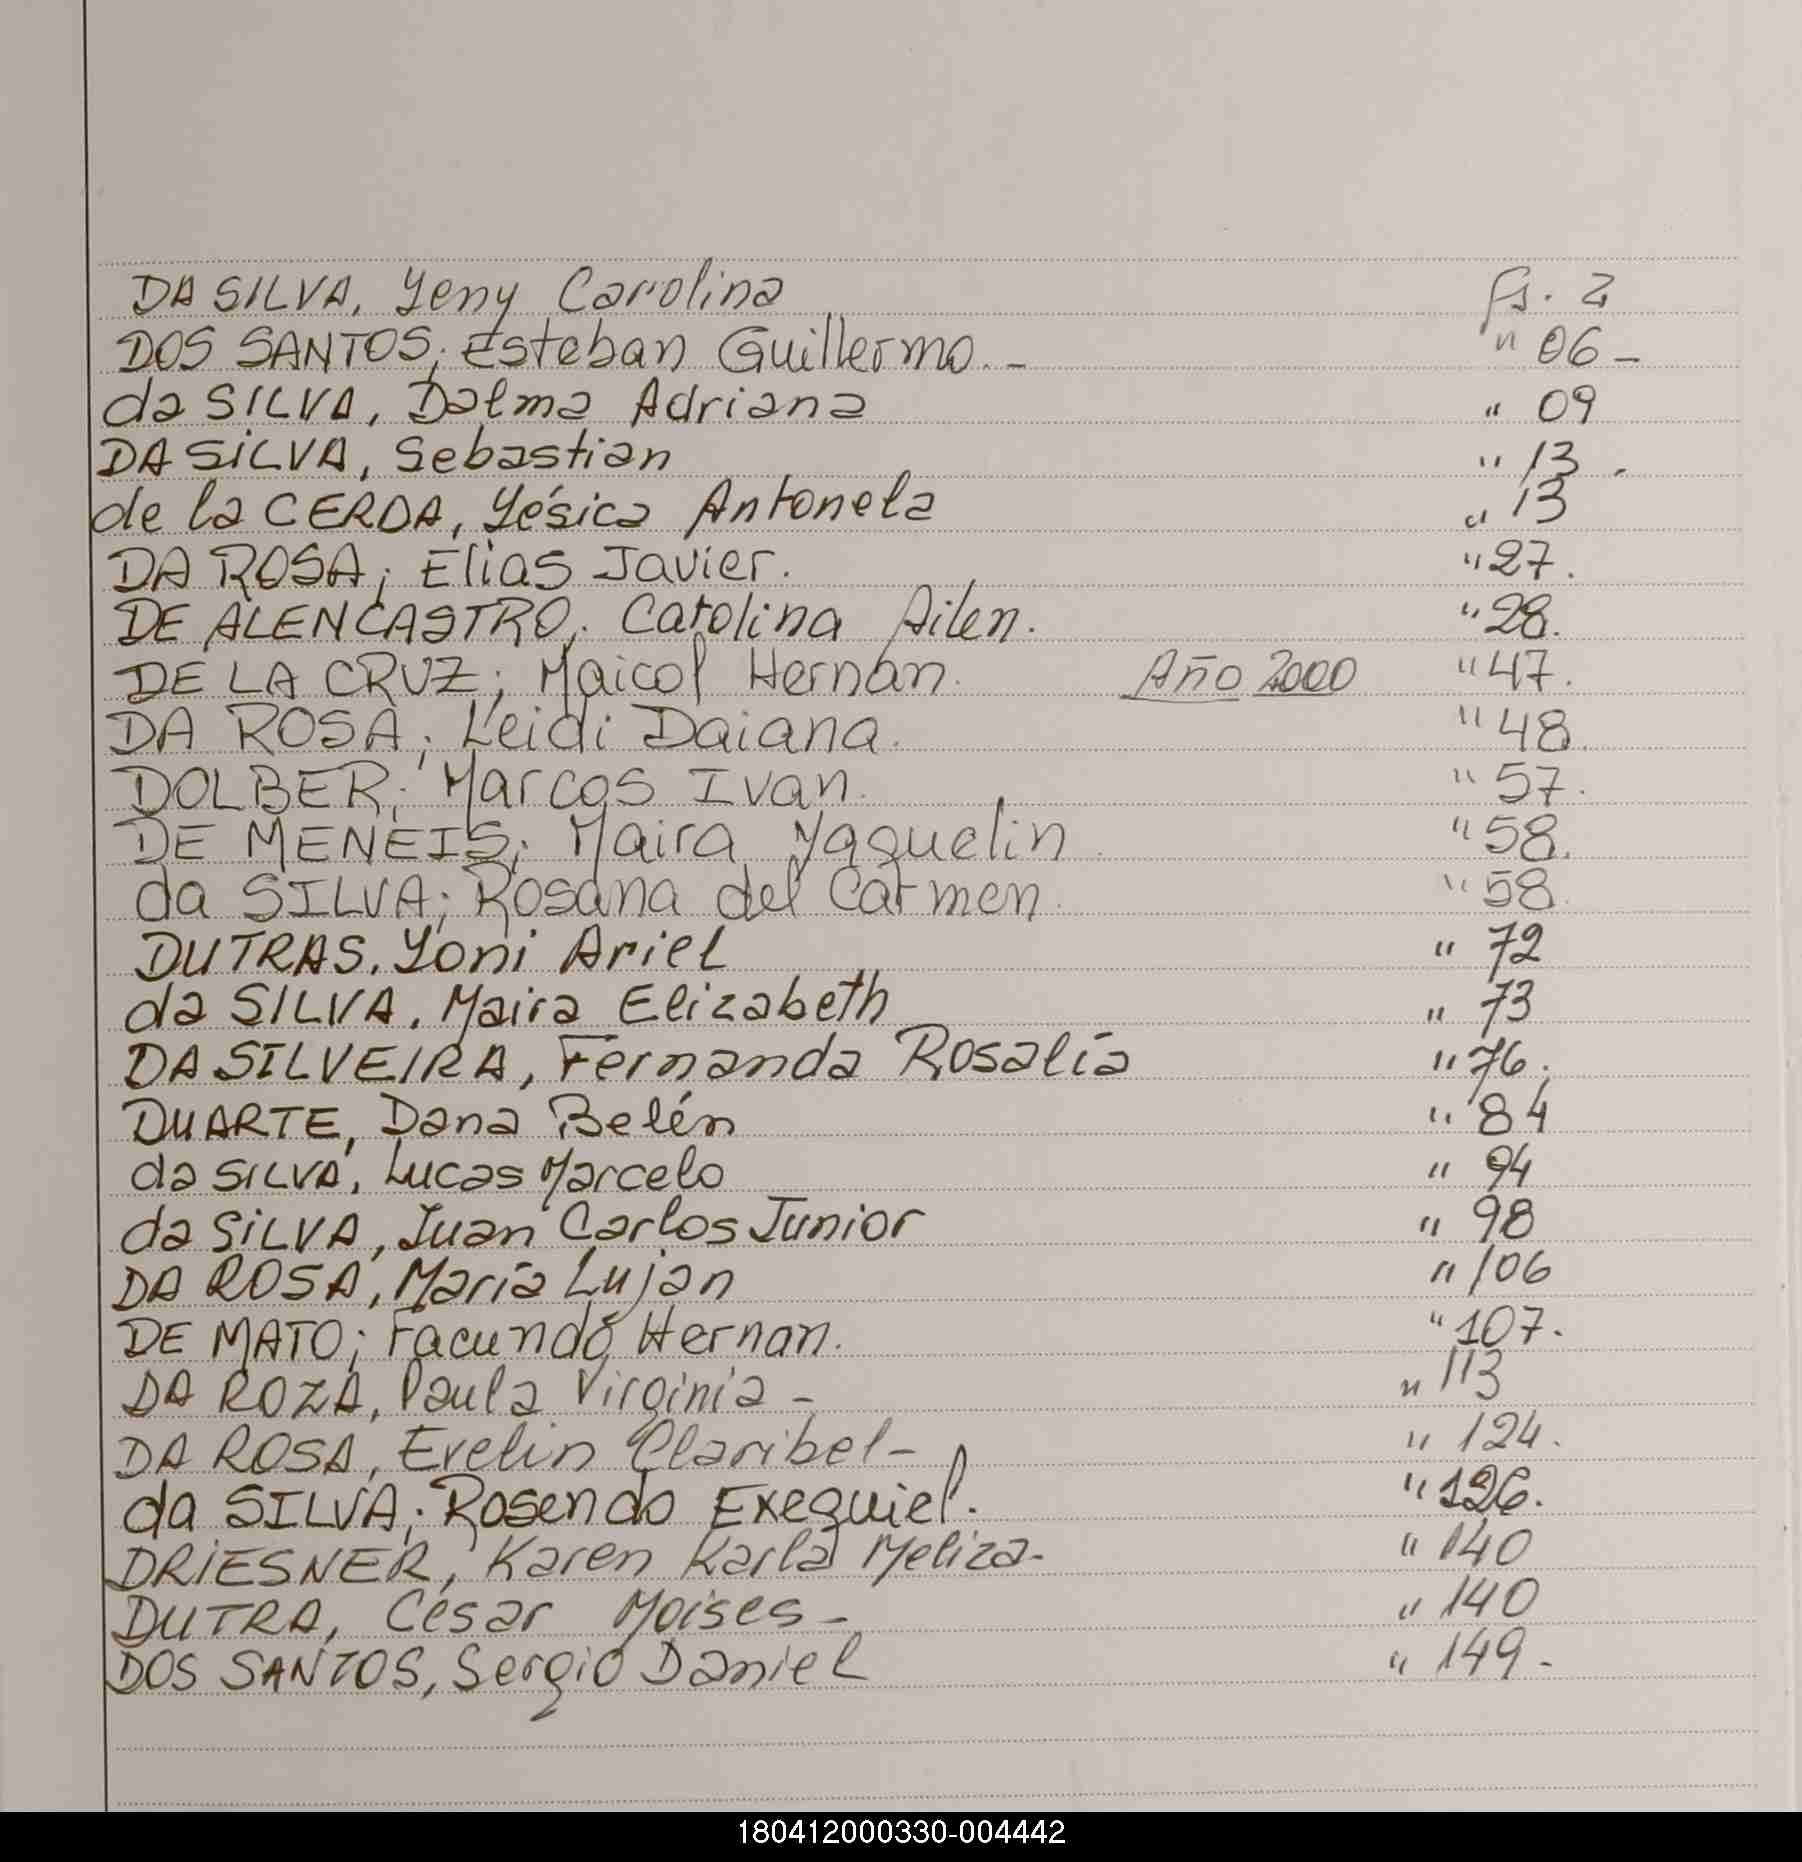 DA SILVA, Yeny Carolina fs. 2
DOS SANTOS; Esteban Guillermo.- " 06-
da SILVA, Dalma Adriana " 09
DA SiLVA, Sebastian " 13.
de la CERDA, Yésica Antonela " 13
DA ROSA; Elias Javier. " 27.
DE ALENCASTRO; Carolina Ailen. " 28.
DE LA CRUZ; Maicol Hernan. Año 2000 " 47.
DA ROSA; Leidi Daiana. " 48.
DOLBER; Marcos Ivan. " 57.
DE MENEIS; Maira Yaquelin. " 58.
da SILVA; Rosana del Carmen. " 58.
DUTRAS, Yoni Ariel " 72
da SILVA, Maira Elizabeth " 73
DA SILVEIRA, Fernanda Rosalía " 76.
DUARTE, Dana Belén " 84
da SILVA, Lucas Marcelo " 94
da SiLVA, Juan Carlos Junior " 98
DA ROSA, María Lujan " 106
DE MATO; Facundo Hernan. " 107.
DA ROZA, Paula Virginia - " 113
DA ROSA, Evelin Claribel - " 124.
da SILVA; Rosendo Exequiel. " 126.
DRiESNER, Karen Karla Meliza- " 140
DUTRA, César Moises- " 140
DOS SANTOS, Sergio Daniel " 149-
180412000330-004442